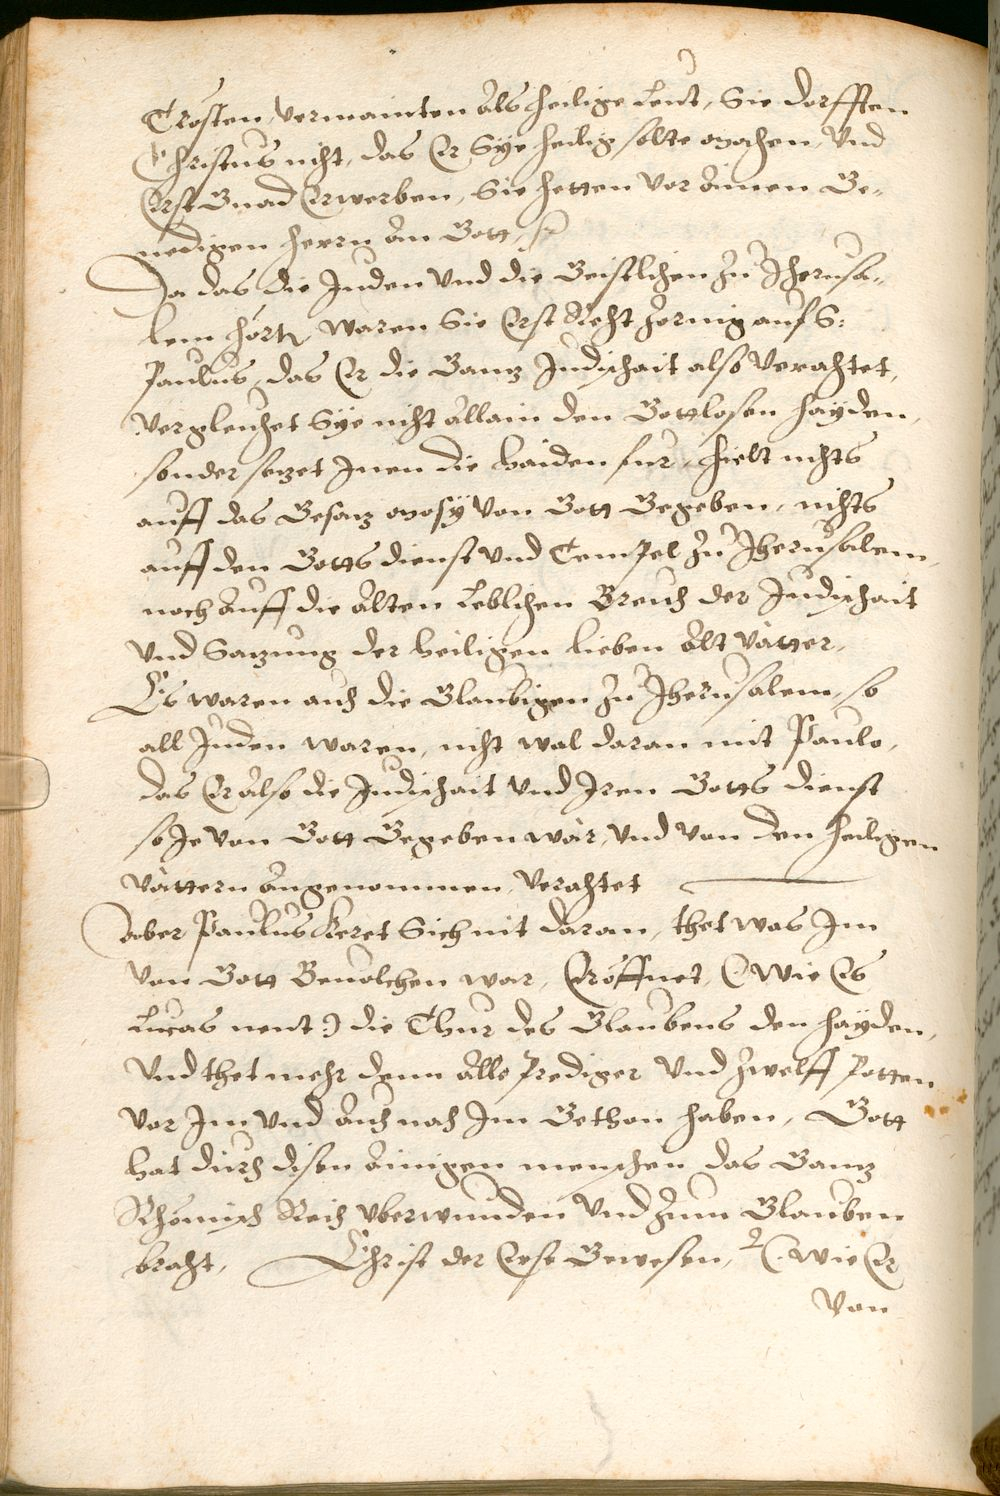 Trosten, vermainten als heilige Leut, Sie dorfften
Christus nicht, das Er Sye heilig solte machen, vnd
Erst Gnad Erwerben, Sie hetten vor ainen Ge-
nedigen herrn an Gott,
Da das die Juden vnd die Geistlichen zu Jherusa-
lem hörtn, waren Sie Erst Recht zornig auf S:
Paulus, das Er die Gantz Judischait also verachtet,
vergleichet Sye nicht allain den Gottlosen hayden,
sonder setzet Jnen die haiden fur, hielt nichts
auff das Gesatz mosy von Gott Gegeben, nichts
auff den Gotts dienst vnd Tempel zu Jherusalem,
noch auff die alten Leblichen Breuch der Judischait
vnd Satzung der heiligen lieben alt vätter.
Es waren auch die Glaubigen zu Jherusalem, so
all Juden waren, nicht wol daran mit Paulo,
das Er also die Judischait vnd Jren Gotts dienst
so Je von Gott Gegeben wär, vnd von den heiligen
vättern angenommen, verachtet
Aber Paulus keret Sich nit daran, thet was Jm
von Gott Beuolchen war, Eröffnet, (: wie Es
Lucas nent :) die Thur des Glaubens den hayden,
vnd thet mehr denn alle Prediger vnd zwelff Potten
vor Jm vnd auch nach Jm Gethon haben, Gott
hat durch disen ainigen menschen das Gantz
Rhömisch Reich vberwunden vnd zum Glauben
bracht, Christ der Erst Gewesen, (: wie Er
von